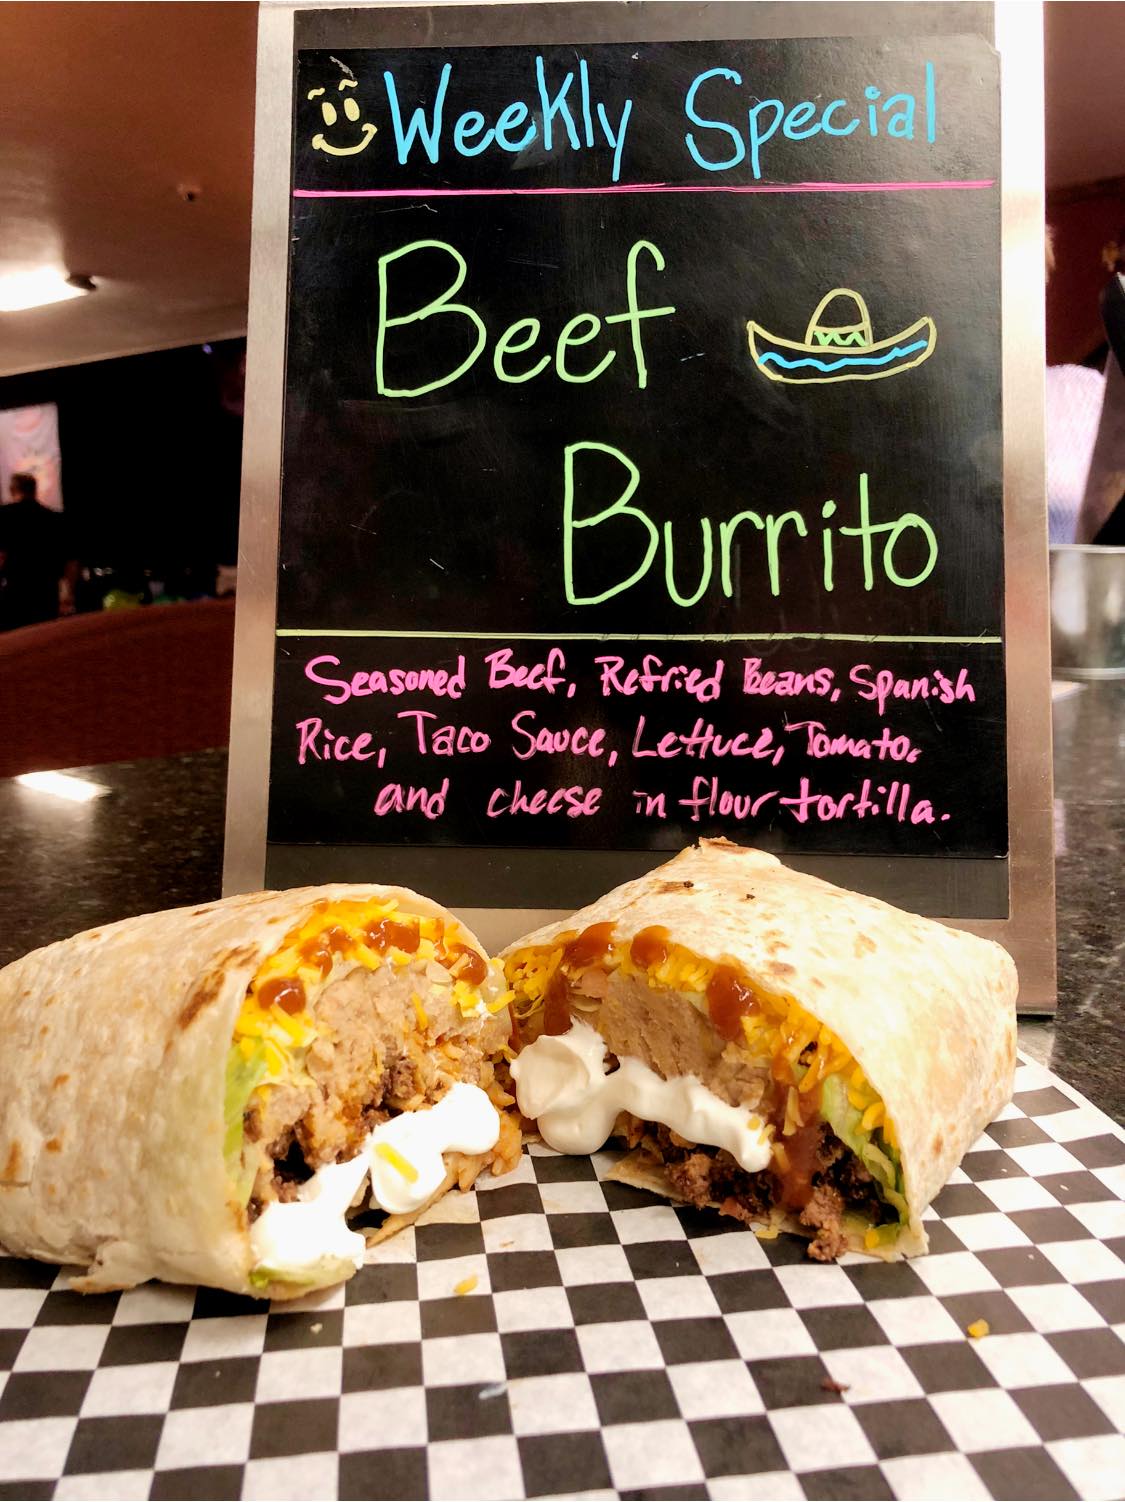 Weekly Special
Beef
Burrito
Seasoned Beef, Refried Beans, Spanish
Rice, Taco Sauce, Lettuce, Tomato,
and cheese in flour tortilla.